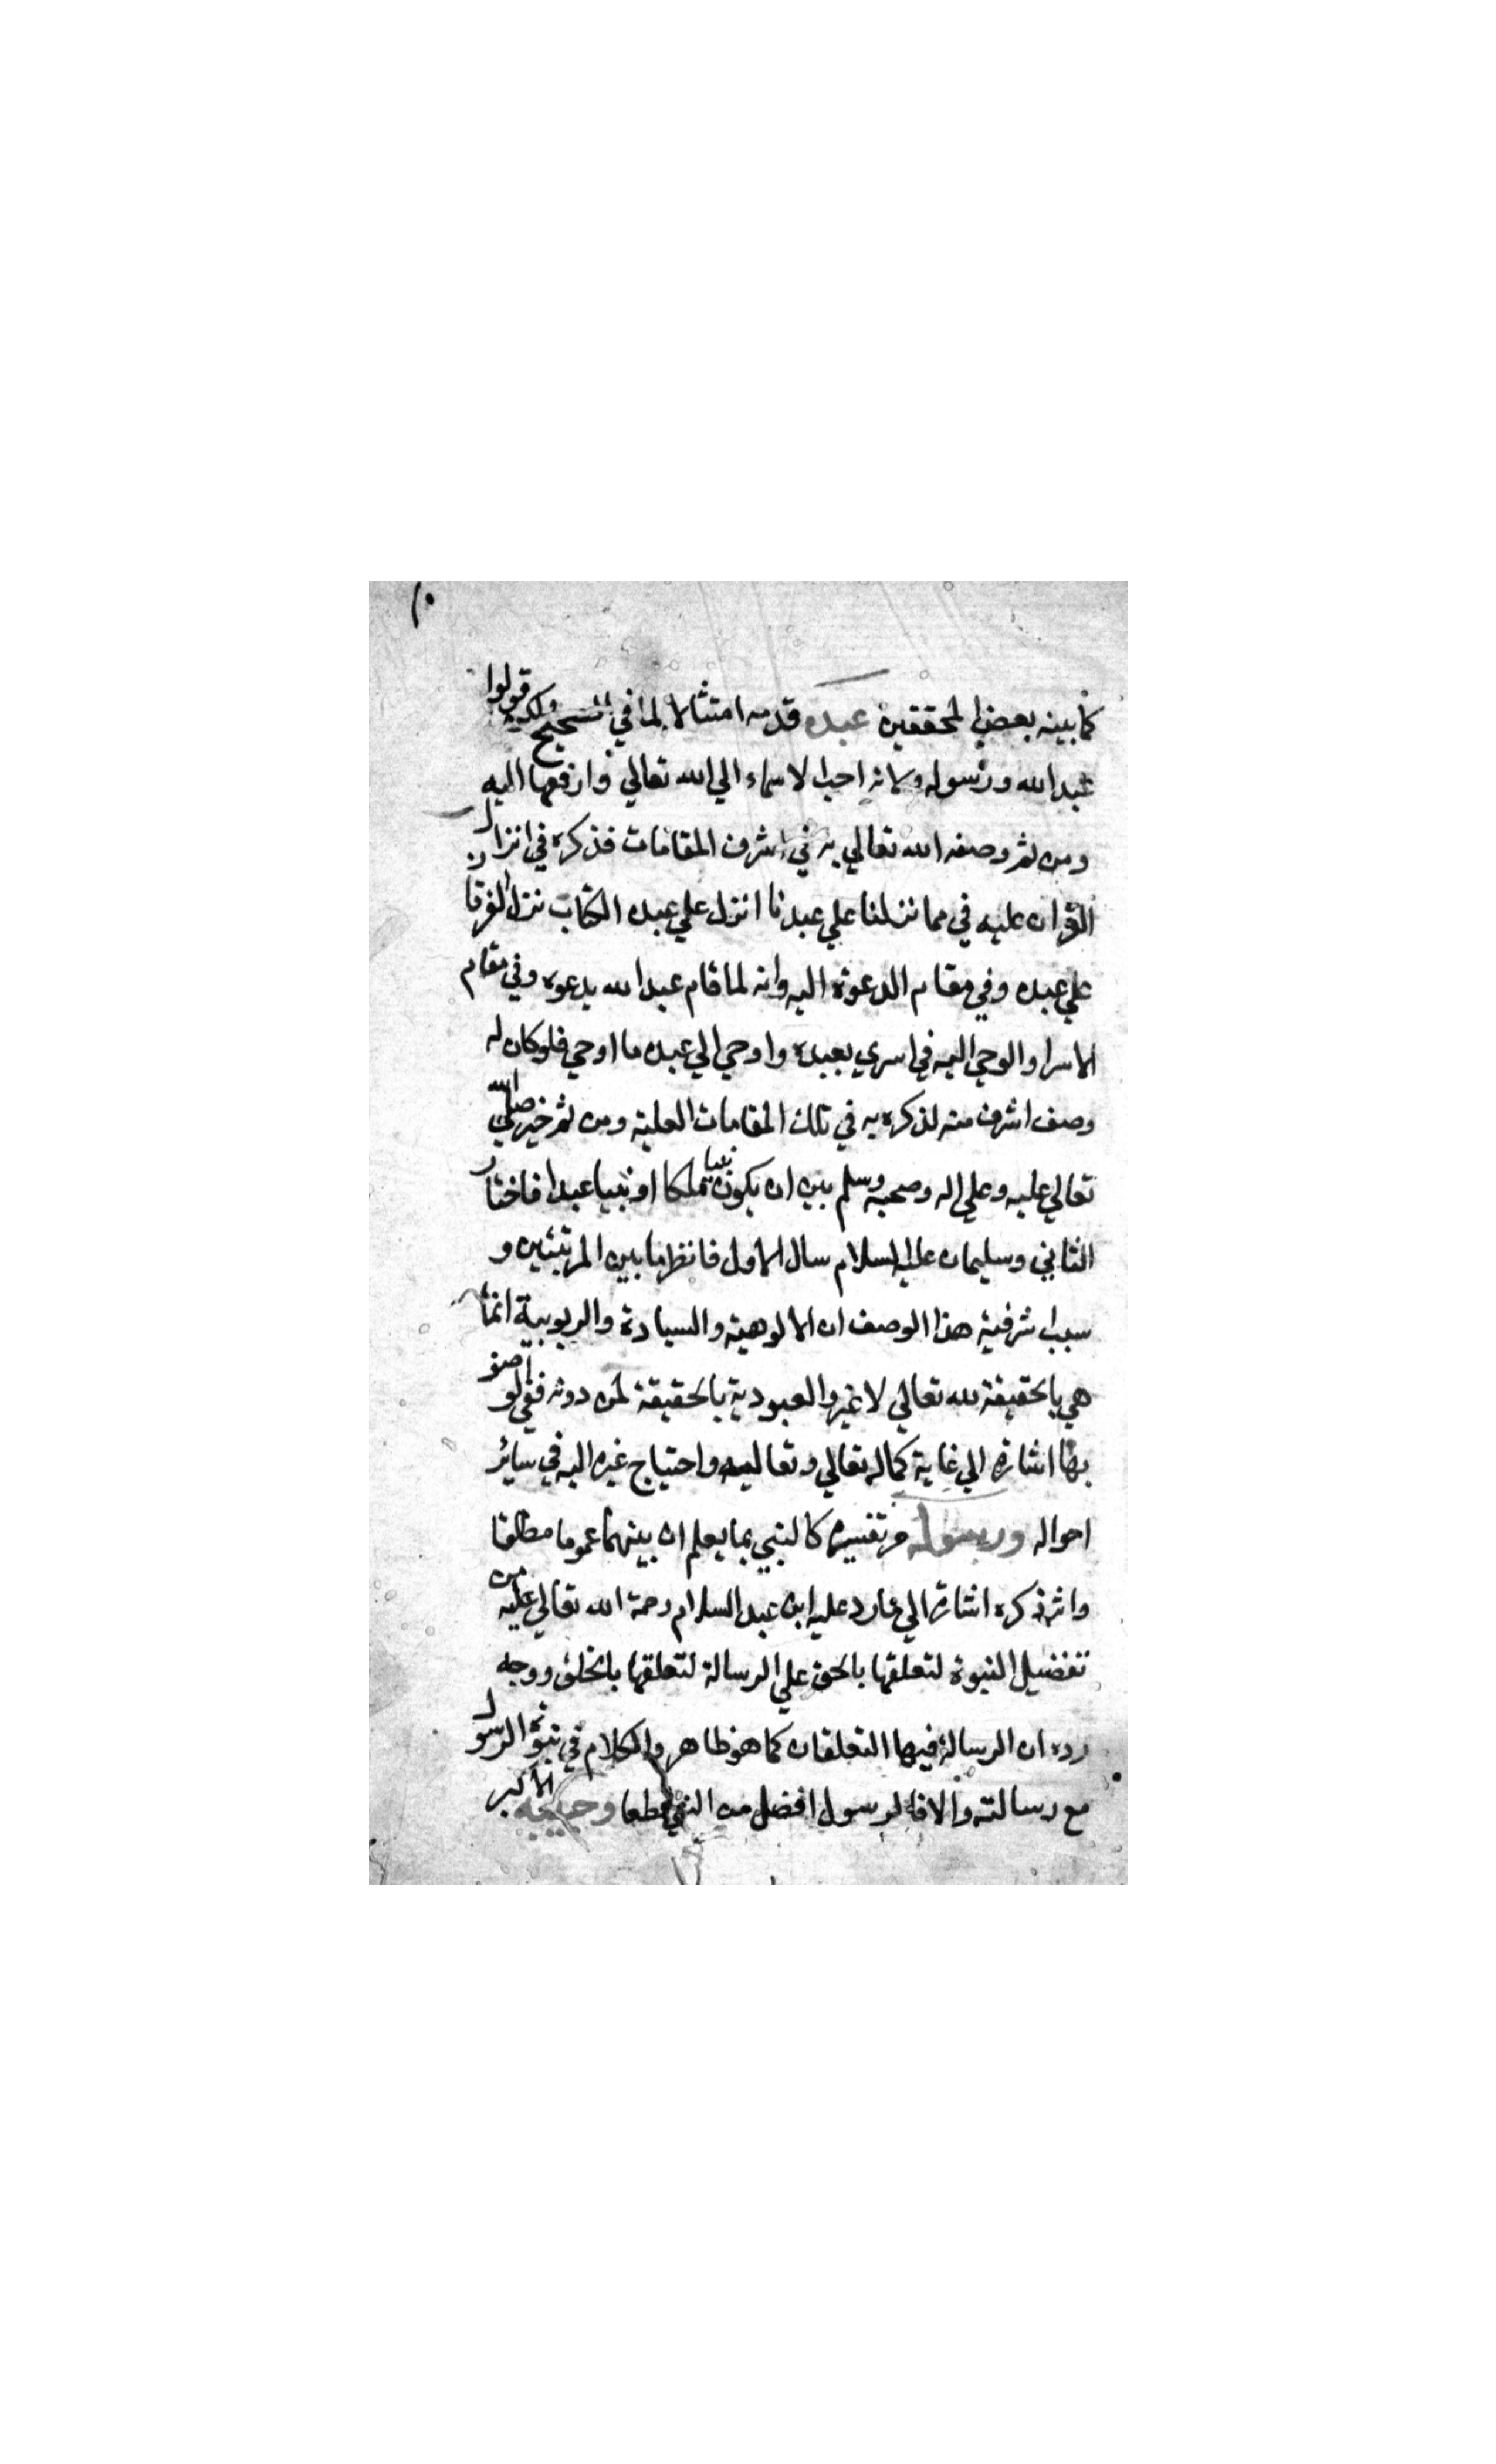 ١٠
كما بينه بعض المحققين عبده قدمه امتثالا لما في الصحيح ولكن قولوا
عبد الله ورسوله ولانه احب الاسماء الي الله تعالي وارفعها اليه
ومن ثم وصفه الله تعالي به في اشرف المقامات فذكره في انزال
القران عليه في مما نزلنا علي عبدنا انزل علي عبده الكتاب نزل الفرقان
علي عبده وفي مقام الدعوة اليه وانه لما قام عبد الله يدعوه وفي مقام
الاسرا والوحي اليه في اسري بعبده واوحي الي عبده ما اوحي فلو كان له
وصف اشرف منه لذكره به في تلك المقامات العلية ومن ثم خير صلي الله
تعالي عليه وعلي اله وصحبه وسلم بين ان يكون نبيا ملكا او نبيا عبدا فاختار
الثاني وسليمان عليه السلام سال الاول فانظر ما بين المرتبتين و
سبب اشرفية هذا الوصف ان الالوهية والسيادة والربوبية انما
هي بالحقيقة لله تعالي لا غير والعبودية بالحقيقة لمن دونه ففي الوصف
بها اشارة الي غاية كماله تعالي وتعاليه واحتياج غيره اليه في سائر
احواله ورسوله مر تفسيره كالنبي بما يعلم ان بينهما عموما مطلقا
واثر ذكره اشارة الي ما رد عليه ابن عبد السلام رحمة الله تعالي عليه من
تفضيل النبوة لتعلقها بالحق علي الرسالة لتعلقها بالخلق ووجه
رده ان الرسالة فيها التعلقان كما هو ظاهر والكلام في نبوة الرسول
مع رسالته والا فالرسول افضل من النبي قطعا وحبيبه الاكبر